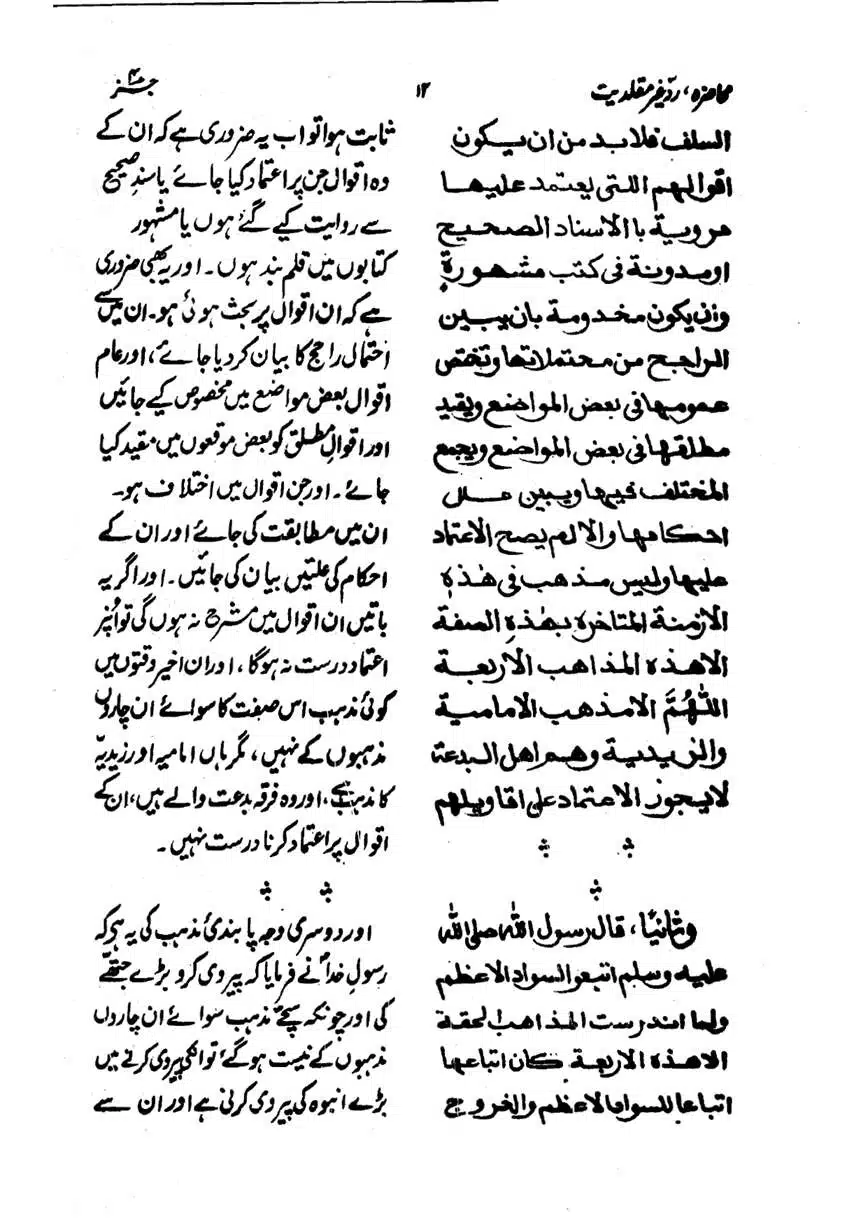 محاضرہ، ردّ غیر مقلدیت
۱۲
جنز ۴
السلف فلابد من ان يكون
اقوالهم اللتى يعتمد عليها
مروية باالاسناد الصحيح
اومدونة فى كتب مشهورة
وان يكون مخدومة بان يبين
الراجح من محتملاتها وتختص
عمومها فى بعض المواضع ويقيد
مطلقها فى بعض المواضع ويجمع
المختلف فيها ويبين علل
احكامها والا لم يصح الاعتماد
عليها وليس مذهب فى هٰذه
الازمنة المتاخرة بهٰذه الصفة
الا هذه المذاهب الاربعة
اللّٰهُمَّ الا مذهب الامامية
والزيدية وهم اهل البدعة
لايجوز الاعتماد على اقاويلهم
وثانيًا، قال رسول الله صلى الله
عليه وسلم اتبعو السواد الاعظم
ولما اندرست المذاهب الحقة
الا هذه الاربعة كان اتباعها
اتباعا للسواد الاعظم والخروج
ثابت ہوا تو اب یہ ضروری ہے کہ ان کے
وہ اقوال جن پر اعتماد کیا جائے یا سند صحیح
سے روایت کیے گئے ہوں یا مشہور
کتابوں میں قلم بند ہوں۔ اور یہ بھی ضروری
ہے کہ ان اقوال پر بحث ہوئی ہو۔ ان میں سے
احتمال راجح کا بیان کر دیا جائے، اور عام
اقوال بعض مواضع میں مخصوص کیے جائیں
اور اقوالِ مطلق کو بعض موقعوں میں مقید کیا
جائے۔ اور جن اقوال میں اختلاف ہو۔
ان میں مطابقت کی جائے اور ان کے
احکام کی علتیں بیان کی جائیں۔ اور اگر یہ
باتیں ان اقوال میں مشرح نہ ہوں گی تو اُنپر
اعتماد درست نہ ہوگا، اور ان اخیر وقتوں میں
کوئی مذہب اس صفت کا سوائے ان چاروں
مذہبوں کے نہیں، مگر ہاں امامیہ اور زیدیّہ
کا مذہب ہے، اور وہ فرقہ بدعت والے ہیں، ان کے
اقوال پر اعتماد کرنا درست نہیں۔
اور دوسری وجہ پابندئ مذہب کی یہ ہے کہ
رسولِ خداؐ نے فرمایا کہ پیروی کرو بڑے جتھّے
کی اور چونکہ سچّے مذہب سوائے ان چاروں
مذہبوں کے نیست ہو گئے تو انکی پیروی کرنے میں
بڑے انبوہ کی پیروی کرنی ہے اور ان سے